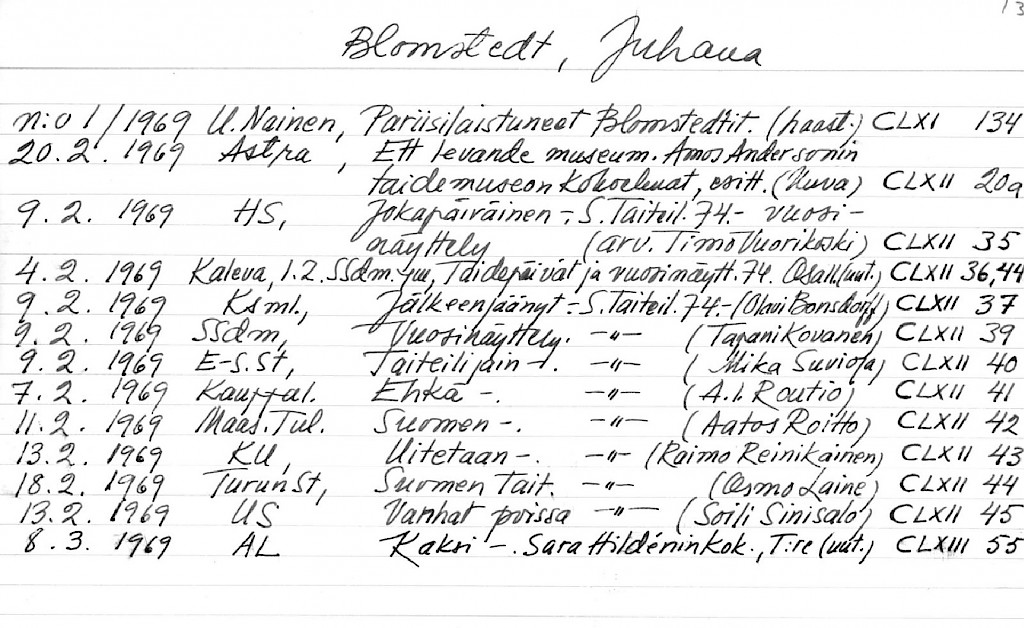 13
Blomstedt, Juhana
n:o 1/1969 U.Nainen, Pariisilaistuneet Blomstedtit. (haast.) CLXI 134
20.2. 1969 Astra, Ett levande museum. Amos Andersonin
taidemuseon kokoelmat, esitt. (kuva) CLXII 20a
9.2. 1969 HS, Jokapäiväinen -: S.Taiteil. 74.- vuosi-
näyttely (arv. Timo Vuorikoski) CLXII 35
4.2. 1969 Kaleva, 1.2. SSdm. ym, Taidepäivät ja vuosinäytt. 74. Osall. (uut.) CLXII 36,44
9.2. 1969 Ksml., Jälkeenjäänyt -: S.Taiteil. 74.- (Olavi Bonsdorff) CLXII 37
9.2. 1969 SSdm, Vuosinäyttely. -"- (Tapani Kovanen) CLXII 39
9.2. 1969 E-S.St, Taiteilijain -. -"- (Mika Suvioja) CLXII 40
7.2. 1969 Kauppal. Ehkä -. -"- (A.I. Routio) CLXII 41
11.2. 1969 Maas.Tul. Suomen -. -"- (Aatos Roitto) CLXII 42
13.2. 1969 KU, Uitetaan -. -"- (Raimo Reinikainen) CLXII 43
18.2. 1969 TurunSt, Suomen Tait. -"- (Osmo Laine) CLXII 44
13.2. 1969 US Vanhat poissa -"- (Soili Sinisalo) CLXII 45
8.3. 1969 AL Kaksi -. Sara Hildénin kok., T:re (uut.) CLXIII 55